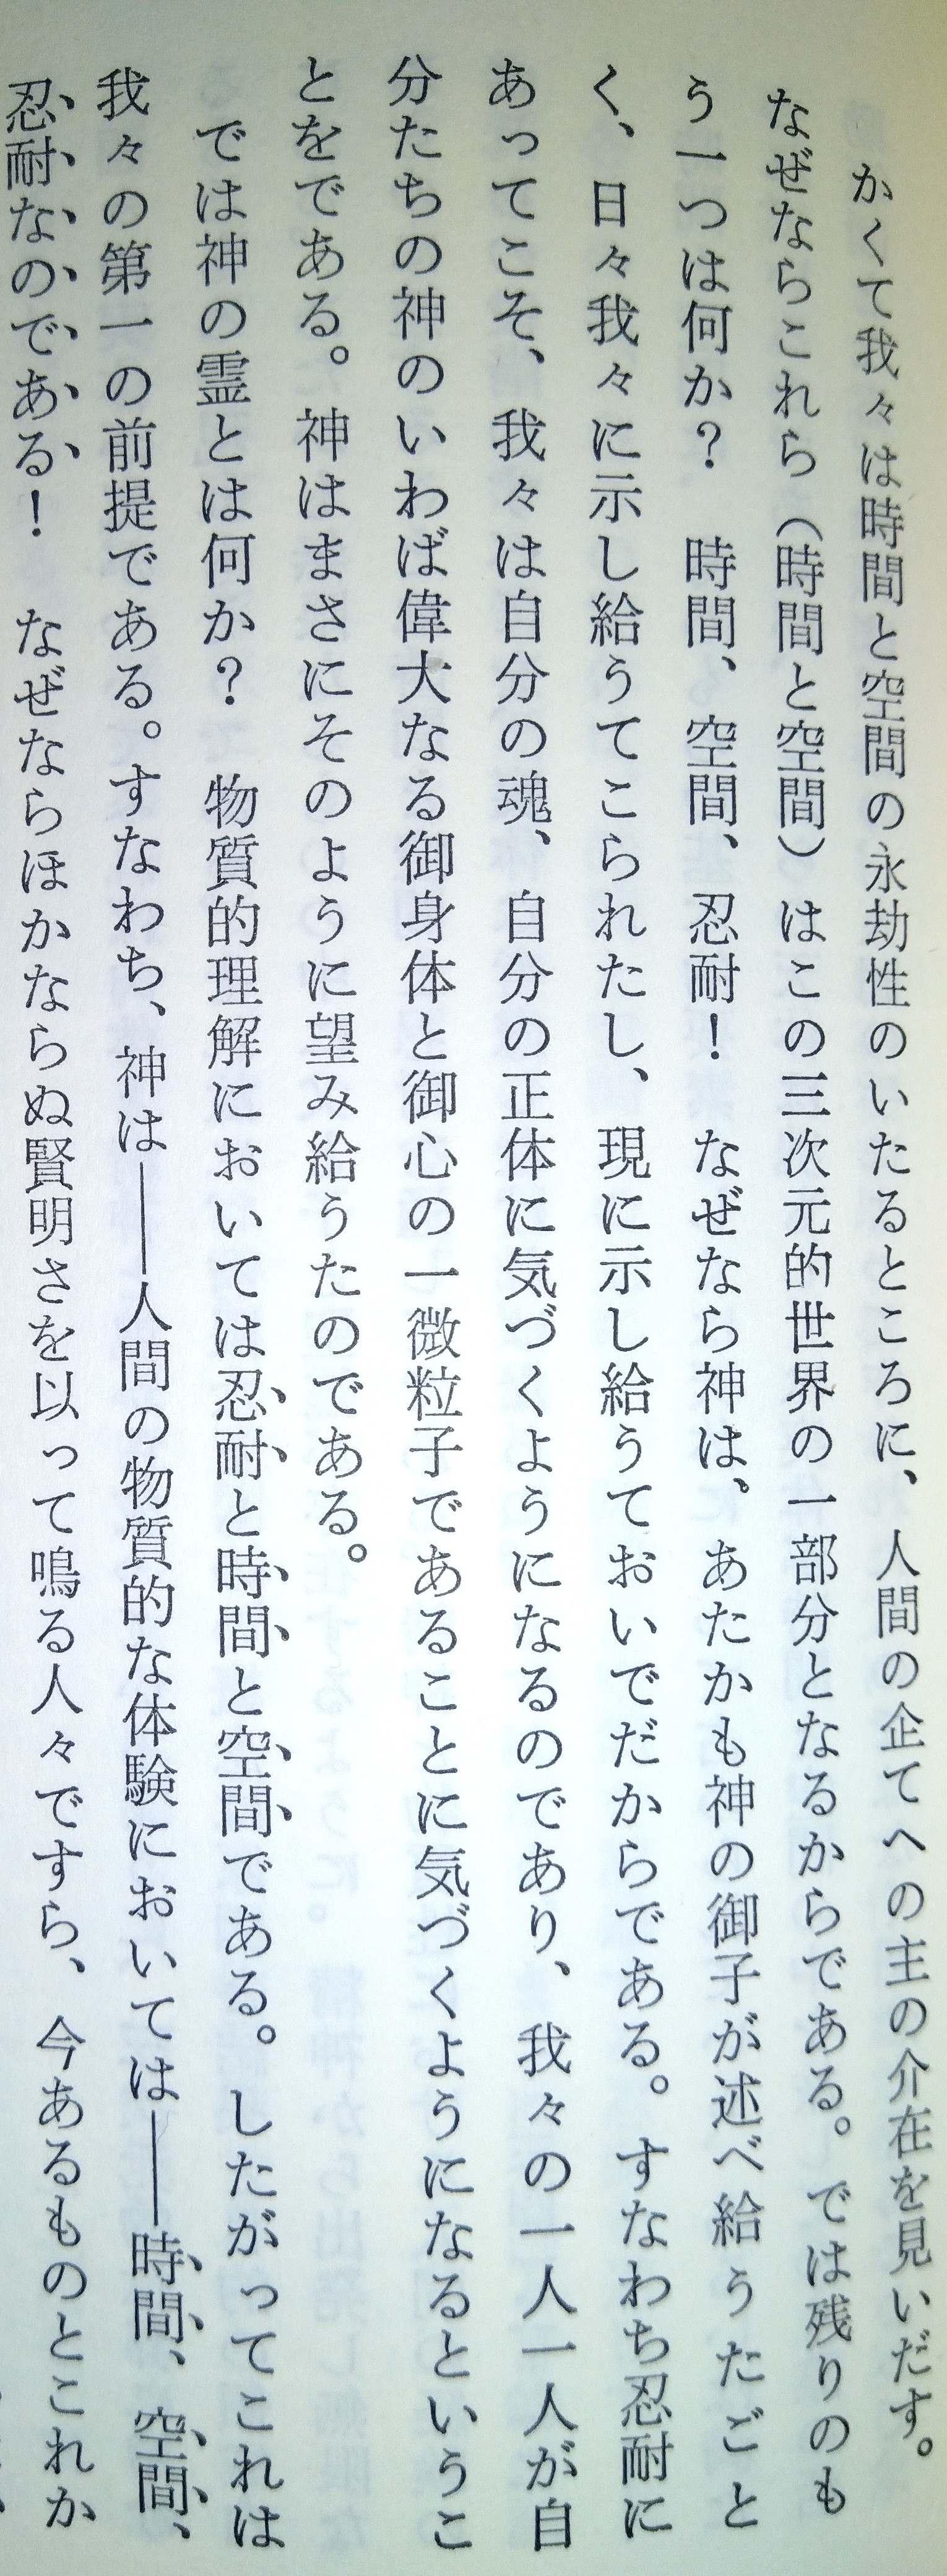 かくて我々は時間と空間の永劫性のいたるところに、人間の企てへの主の介在を見いだす。
なぜならこれら（時間と空間）はこの三次元的世界の一部分となるからである。では残りのも
う一つは何か？　時間、空間、忍耐！　なぜなら神は、あたかも神の御子が述べ給うたごと
く、日々我々に示し給うてこられたし、現に示し給うておいでだからである。すなわち忍耐に
あってこそ、我々は自分の魂、自分の正体に気づくようになるのであり、我々の一人一人が自
分たちの神のいわば偉大なる御身体と御心の一微粒子であることに気づくようになるというこ
とをである。神はまさにそのように望み給うたのである。
では神の霊とは何か？　物質的理解においては忍耐と時間と空間である。したがってこれは
我々の第一の前提である。すなわち、神は――人間の物質的な体験においては――時間、空間、
忍耐なのである！　なぜならほかならぬ賢明さを以って鳴る人々ですら、今あるものとこれか